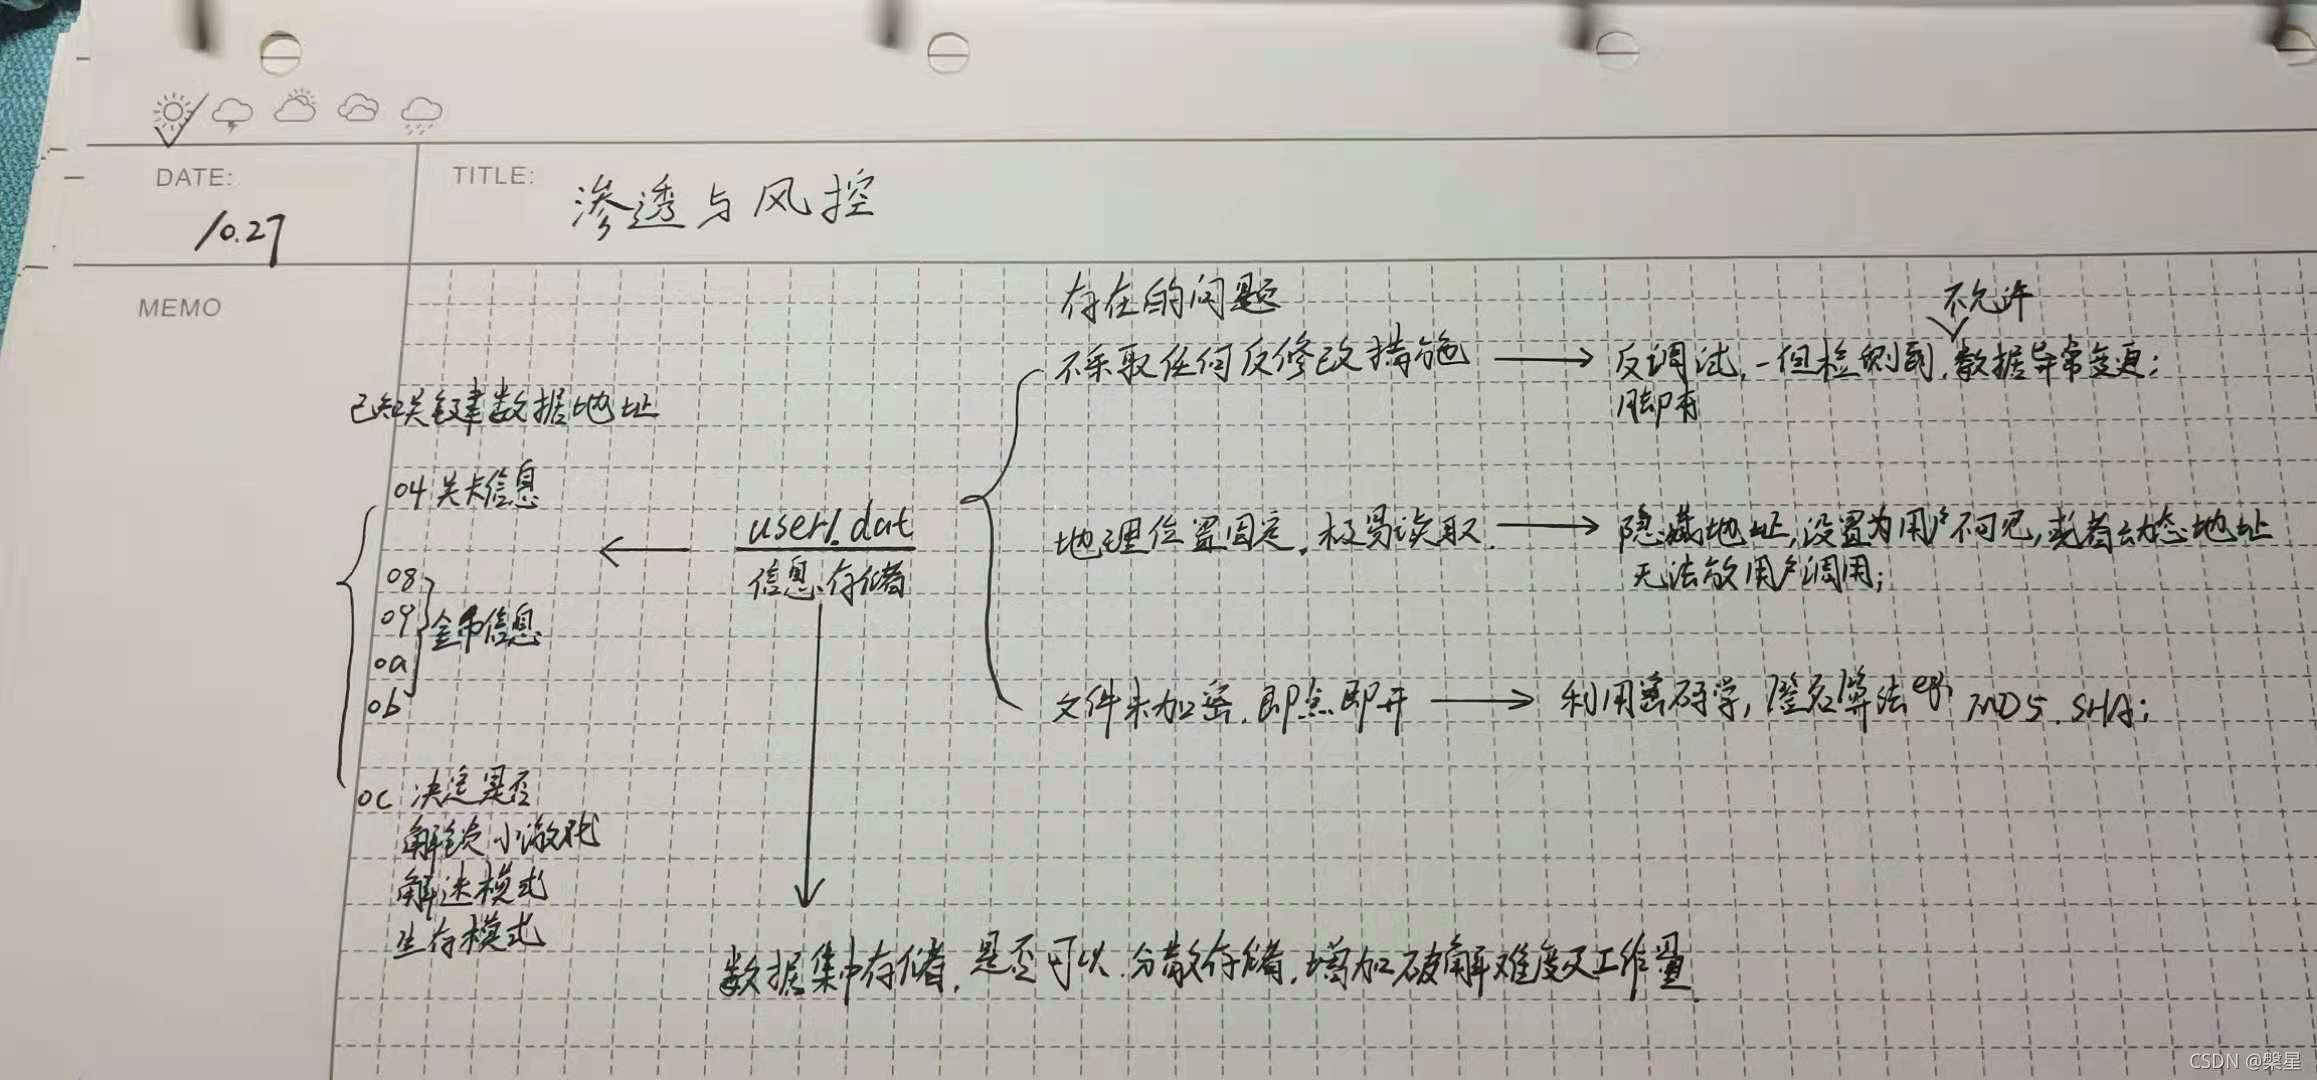 DATE:
10.27
TITLE:
渗透与风控
MEMO
已知关键数据地址
04 关卡信息
08
09
0a
0b
金币信息
0c 决定是否
解锁小游戏
解迷模式
生存模式
user1.dat
信息存储
数据集中存储,是否可以分散存储,增加破解难度及工作量
存在的问题
不采取任何反修改措施
不允许
反调试,一但检测到,数据异常变更;
地理位置固定,极易读取.
隐藏地址,设置为用户不可见,或者动态地址
无法被用户调用;
文件未加密,即点即开
利用密码学,签名算法 eg, MD5. SHA;
CSDN @槃星